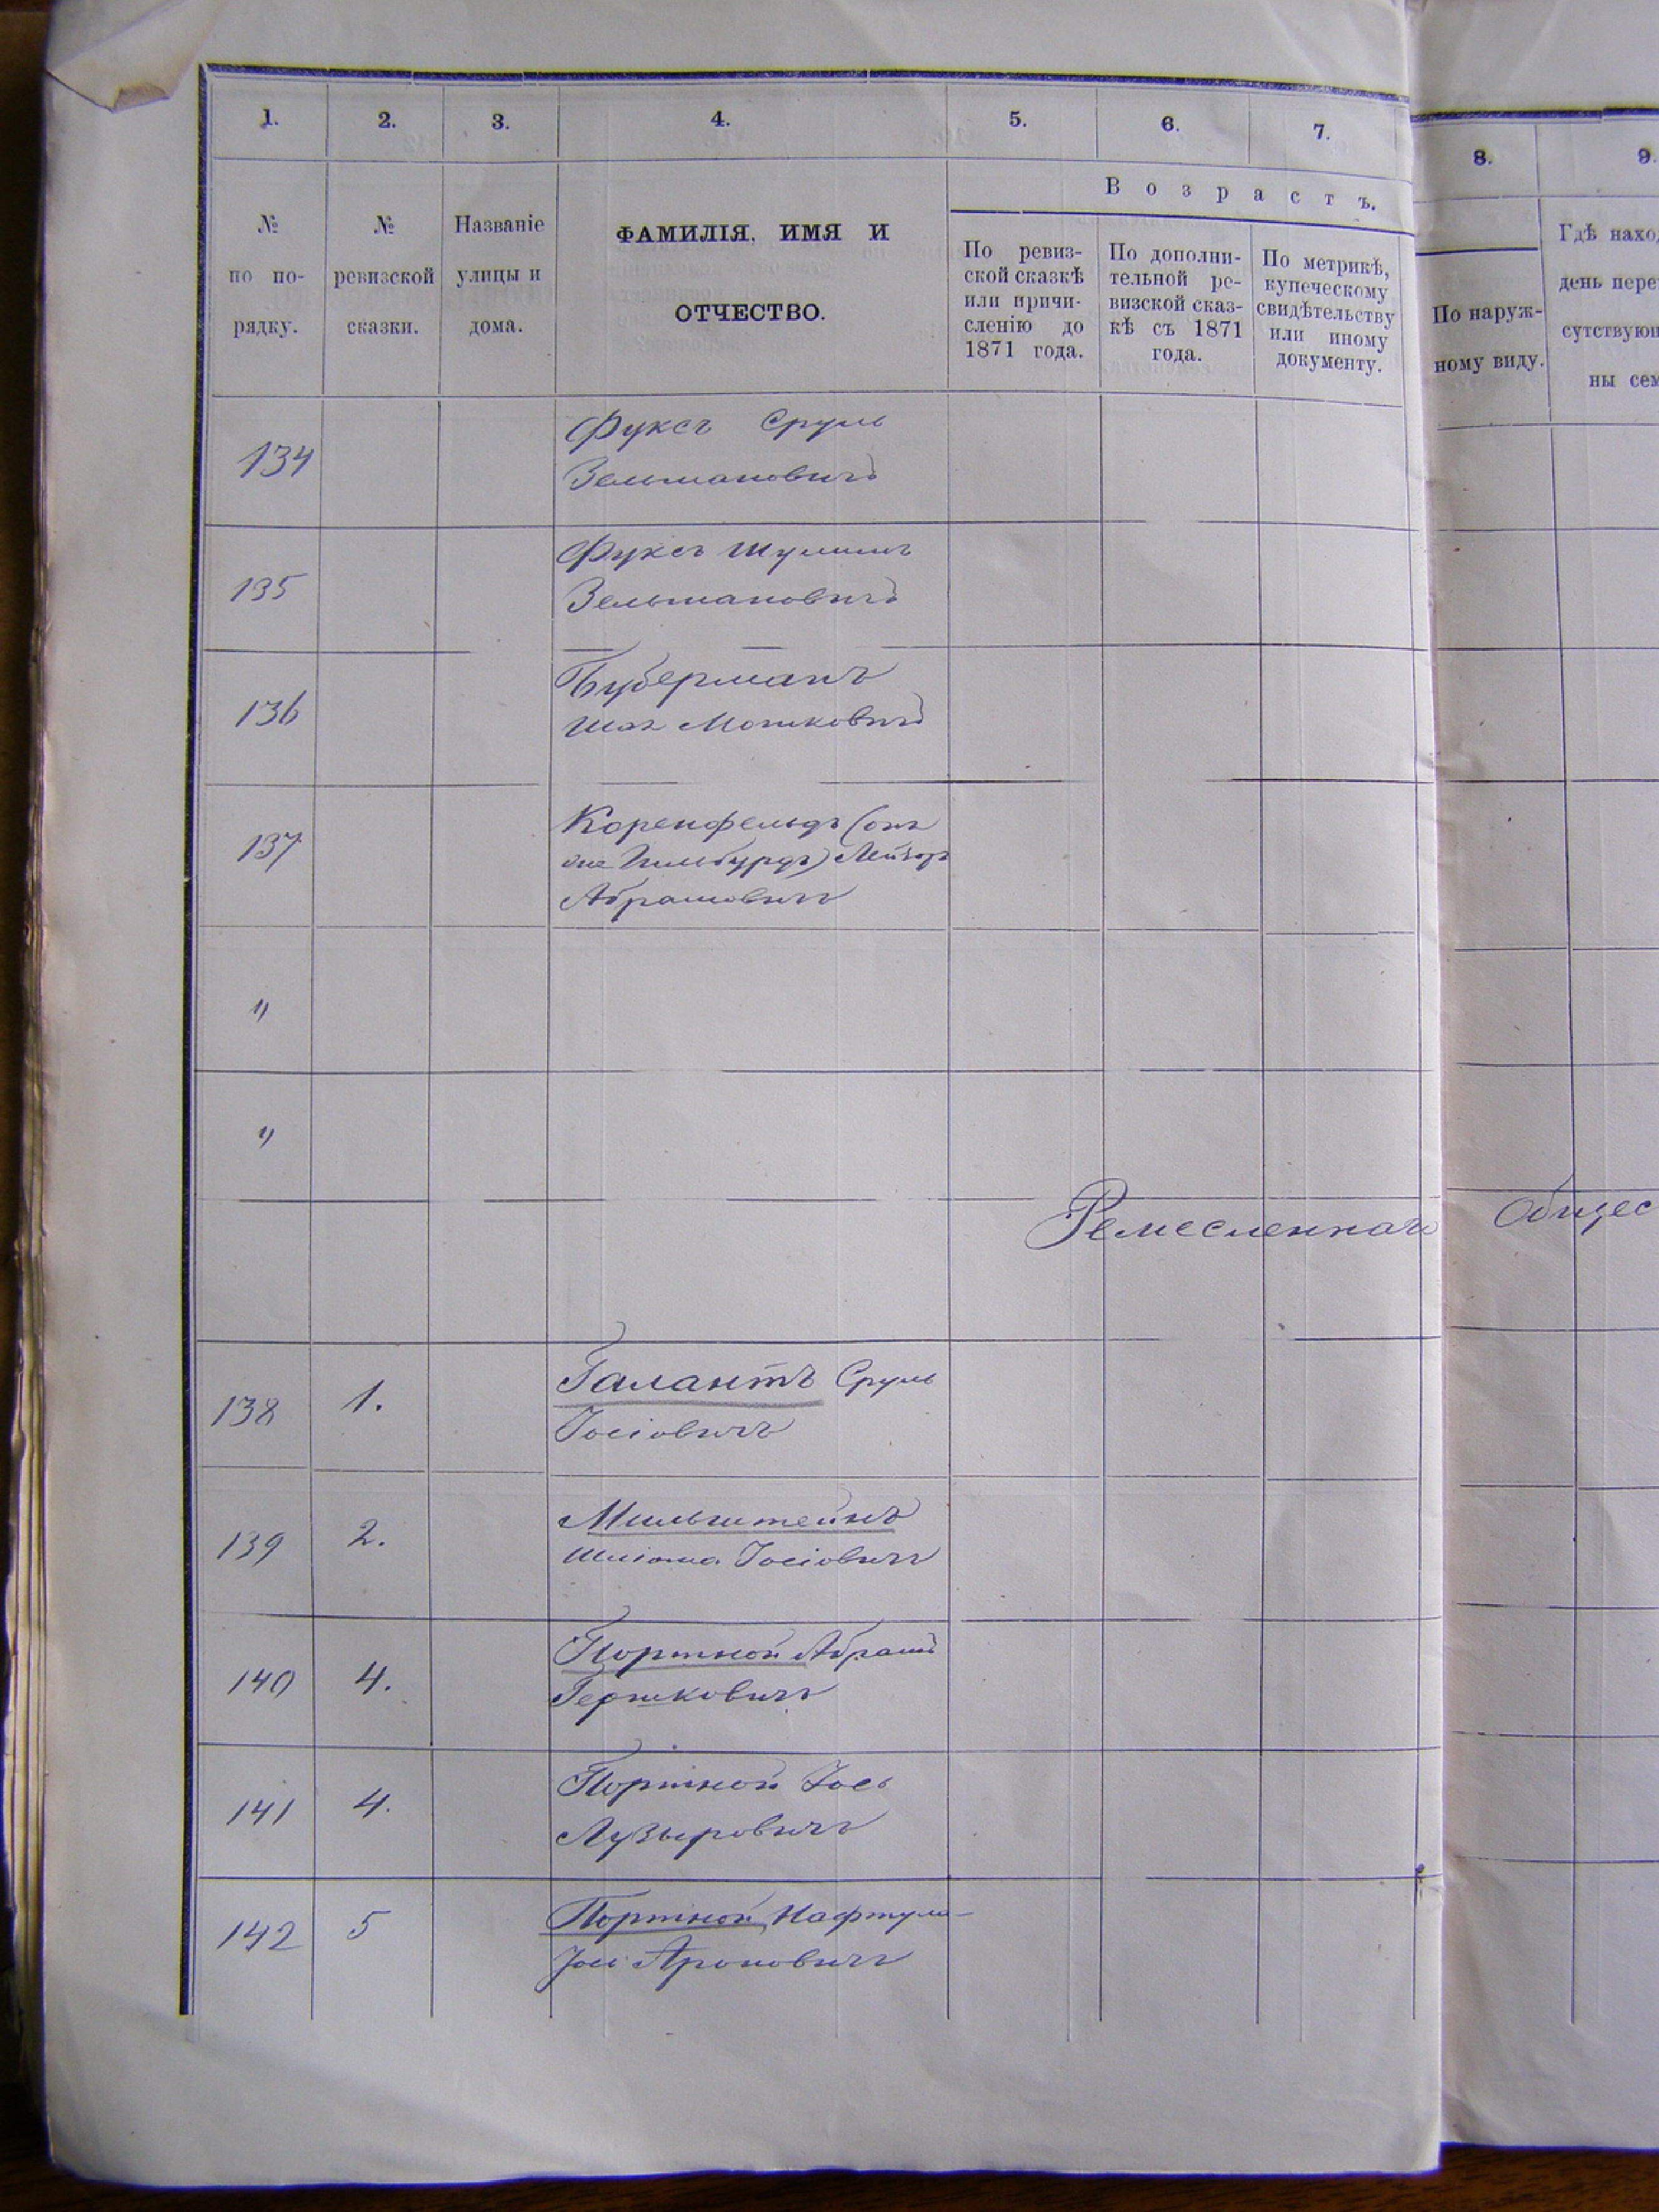 1. 2. 3. 4. 5. 6. 7. 8. 9.
Возрастъ.
№ по по-рядку.
№ ревизской сказки.
Названіе улицы и дома.
ФАМИЛІЯ, ИМЯ И
ОТЧЕСТВО.
По ревиз-
ской сказкѣ
или причи-
сленію до
1871 года.
По дополни-
тельной ре-
визской сказ-
кѣ съ 1871
года.
По метрикѣ,
купеческому
свидѣтельству
или иному
документу.
По наруж-
ному виду.
Гдѣ нахо
день пере
сутствую
ны сем
134 Фуксъ Сруль
Зельмановичъ
135 Фуксъ
Зельмановичъ
136 Буберманъ
Мошковичъ
137 Коренфельдъ (онъ
же Гильбурдъ) Лейзоръ
Абрамовичъ
"
"
Ремесленнаго Общес
138 1. Галантъ Сруль
Іосіовичъ
139 2. Мильштейнъ
Шлiома Іосіовичъ
140 4. Портной Абрамъ
Гершковичъ
141 4. Портной Іось
Лузыровичъ
142 5 Портной Нафтула-
Іось Ароновичъ